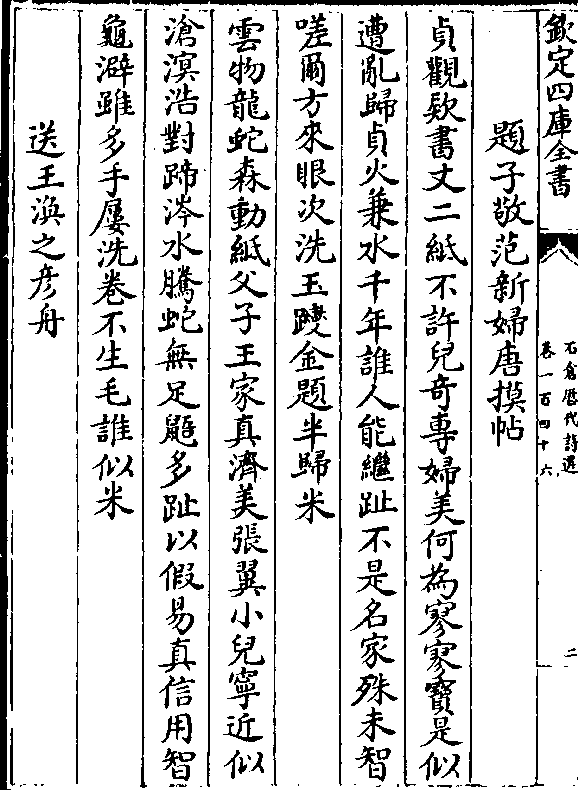 欽定四庫全書
石倉歷代詩選
卷一百四十六
二
題子敬范新婦唐摸帖
貞觀欵書丈二紙不許兒奇專婦美何為寥寥寶是似
遭亂歸貞火兼水千年誰人能繼趾不是名家殊未智
嗟爾方來眼次洗玉躞金題半歸米
雲物龍蛇森動紙父子王家真濟美張翼小兒寧近似
滄溟浩對蹄涔水騰蛇無足鼶多趾以假易真信用智
龜澼雖多手屢洗卷不生毛誰似米
送王渙之彦舟